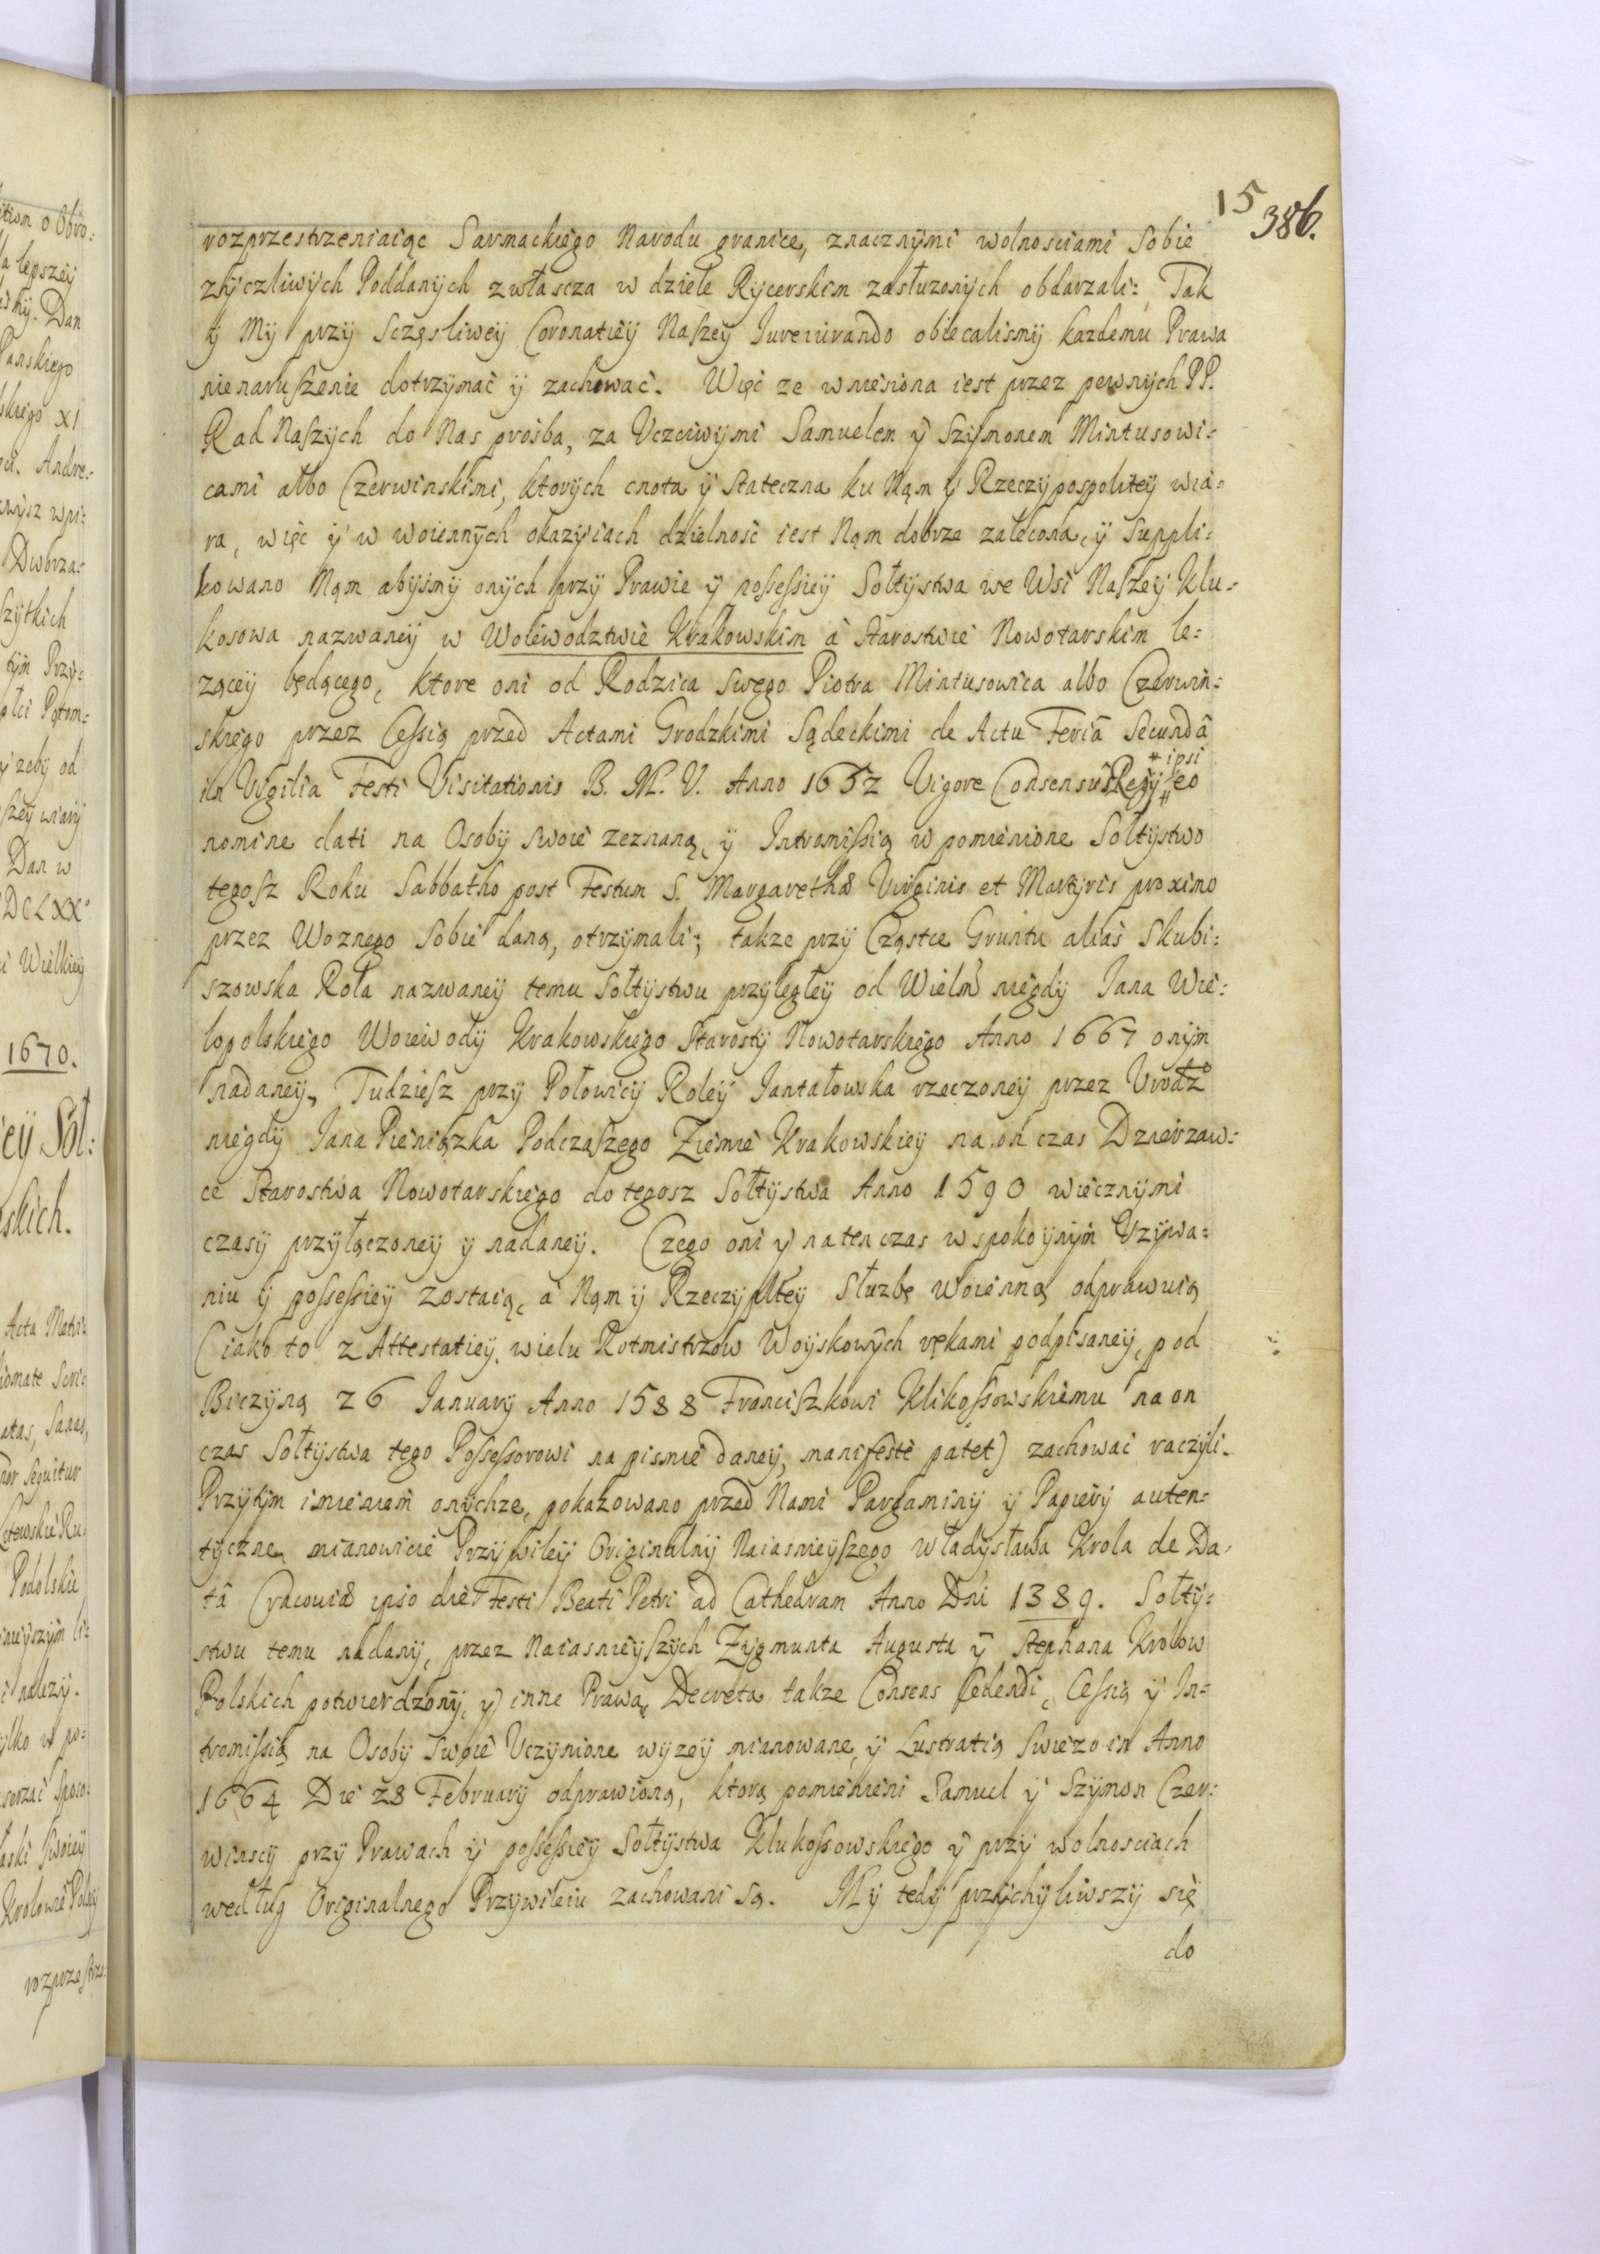 15 386.
rozprzestrzeniaiąc Sarmackiego Narodu granice, znacznymi wolnosciami Sobie
zÿczliwÿch Poddanÿch zwłascza w dziele Rÿcerskim zasłuzonÿch obdarzali: Tak
ÿ Mÿ przÿ Scząsliwey Coronatiey Naszeÿ Iureiurando obiecalismÿ kazdemu Prawa
nienaruszenie dotrzÿmać ÿ zachować. Więc ze wniesiona iest przez pewnÿch PP.
Rad Naszÿch do Nas prośba, za Uczciwÿmi Samuelem ÿ Szÿmonem Mintusowi:
cami albo Czerwinskimi, ktorÿch cnota ÿ stateczna ku Nąm ÿ Rzeczÿpospolitey wia:
ra, więc ÿ w woiennÿch okazÿiach dzielność iest Nąm dobrze zalecona, ÿ Suppli:
kowano Nąm abÿsmÿ onÿch przÿ Prawie ÿ possessieÿ Sołtÿstwa we Wsi Naszeÿ Klu:
kosowa nazwaneÿ w Woiewodztwie Krakowskim a Starostwie Nowotarskim le:
zącej będącego, ktore oni od Rodzica Swego Piotra Mintusowica albo Czerwin:
skiego przez Cessią przed Actami Grodzkimi Sądeckimi de Actu Feriâ Secundâ
in Vigilia Festi Visitationis B. M. V. Anno 1652 Vigore Consensûs Regÿ * ipsi eo
nomine dati na Osobÿ swoie zeznaną, ÿ Intromissią w pomienione Sołtÿstwo
tegosz Roku Sabbatho post Festum S. Margarethæ Virginis et Martÿris proximo
przez Woznego Sobie daną, otrzÿmali; takze przÿ Cząstce Gruntu alias Skubi:
szowska Rola nazwaneÿ temu Sołtÿstwu przÿległeÿ od Wielm niegdÿ Jana Wie:
lopolskiego Woiewodÿ Krakowskiego Starostÿ Nowotarskiego Anno 1667 onÿm
nadaneÿ, Tudziesz przÿ Połowicÿ Roleÿ Jantałowska rzeczoneÿ przez Urodz°
niegdÿ Jana Pieniążka Podczaszego Ziemie Krakowskieÿ na on czas Dzierzaw:
ce Starostwa Nowotarskiego do tegosz Sołtÿstwa Anno 1590 wiecznÿmi
czasÿ przÿłączoneÿ ÿ nadaneÿ. Czego oni ÿ na ten czas w spokoÿnÿm Uzÿwa:
niu ÿ possessieÿ zostaią, a Nąm ÿ Rzeczÿpltey Słuzbę woienną odprawuią
(iako to z Attestatieÿ wielu Rotmistrzow Woÿskowÿch rękami podpisaneÿ, pod
Biczÿną 26 Januarÿ Anno 1588 Franciszkowi Klikossowskiemu na on
czas Sołtÿstwa tego Possessorowi na pismie daneÿ, manifeste patet) zachować raczÿli.
Przÿtÿm imieniem onÿchze, pokazowano przed Nami Pargaminÿ ÿ Papierÿ auten:
tÿczne, mianowicie Przÿwileÿ Originalnÿ Naiasnieÿszego Władÿsława Krola de Da:
tâ Cracoviæ ipso die Festi Beati Petri ad Cathedram Anno Dni 1389. Sołtÿ:
stwu temu nadanÿ, przez Naiasnieÿszÿch Zÿgmunta Augusta ÿ Stephana Krolow
Polskich potwierdzonÿ, ÿ inne Prawa, Decreta takze Consens Cedendi, Cessią ÿ In:
tromissią na Osobÿ swoie Uczÿnione wÿzeÿ mianowane, ÿ Lustratią swiezo in Anno
1664 Die 28 Februarÿ odprawioną, ktorą pomienieni Samuel ÿ Szÿmon Czer:
winscÿ przÿ Prawach ÿ possessieÿ Sołtÿstwa Klukossowskiego ÿ przÿ wolnosciach
według Originalnego Przÿwileiu zachowani są. Mÿ tedÿ przÿchÿliwszÿ się
do